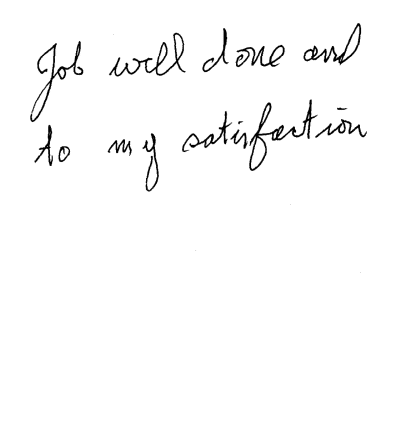 Job well done and
to my satisfaction